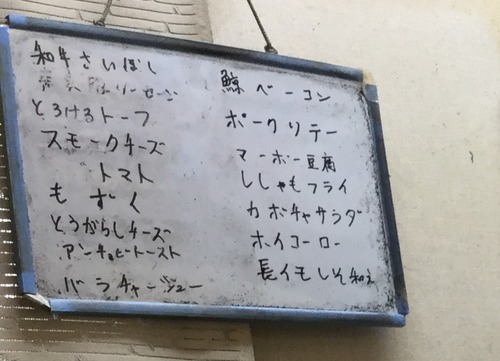 和牛さいぼし
ソーセージ
とろけるトーフ
スモークチーズ
トマト
もずく
とうがらしチーズ
アンチョビトースト
バラチャーシュー
鯨ベーコン
ポークソテー
マーボー豆腐
ししゃもフライ
カボチャサラダ
ホイコーロー
長イモしそ和え